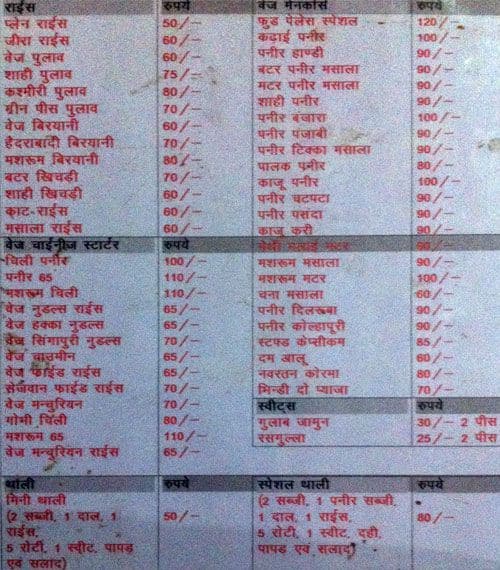 राईस रुपये
प्लेन राईस 50/–
जीरा राईस 60/–
वेज पुलाव 60/–
शाही पुलाव 75/–
कश्मीरी पुलाव 80/–
ग्रीन पीस पुलाव 70/–
वेज बिरयानी 60/–
हैदराबादी बिरयानी 70/–
मशरूम बिरयानी 80/–
बटर खिचडी 70/–
शाही खिचडी 60/–
काट-राईस 60/–
मसाला राईस 60/–
वेज चाईनीज स्टार्टर रुपये
चिली पनीर 100/–
पनीर 65 110/–
मशरूम चिली 110/–
वेज नुडल्स राईस 65/–
वेज हक्का नुडल्स 65/–
वेज सिंगापुरी नुडल्स 70/–
वेज चाउमीन 65/–
वेज फाईड राईस 65/–
सेजवान फाईड राईस 70/–
वेज मन्चुरियन 70/–
गोभी चिली 80/–
मशरूम 65 110/–
वेज मन्चुरियन राईस 65/–
थाली रुपये
मिनी थाली
(2 सब्जी, 1 दाल, 1 50/–
राईस,
5 रोटी, 1 स्वीट, पापड
एवं सलाद)
वेज मेनकोर्स रुपये
फुड पेलेस स्पेशल 120/–
कढ़ाई पनीर 100/–
पनीर हाण्डी 90/–
बटर पनीर मसाला 90/–
मटर पनीर मसाला 90/–
शाही पनीर 90/–
पनीर बंजारा 100/–
पनीर पंजाबी 90/–
पनीर टिक्का मसाला 90/–
पालक पनीर 80/–
काजू पनीर 100/–
पनीर चटपटा 90/–
पनीर पसंदा 90/–
काजू करी 90/–
मेथी मलाई मटर 90/–
मशरूम मसाला 90/–
मशरूम मटर 100/–
चना मसाला 60/–
पनीर दिलरूबा 90/–
पनीर कोल्हापूरी 90/–
स्टफ्ड केप्सीकम 85/–
दम आलू 60/–
नवरतन कोरमा 80/–
भिन्डी दो प्याजा 70/–
स्वीट्स रुपये
गुलाब जामुन 30/– 2 पीस
रसगुल्ला 25/– 2 पीस
स्पेशल थाली रुपये
(2 सब्जी, 1 पनीर सब्जी,
1 दाल, 1 राईस, 80/–
5 रोटी, 1 स्वीट, दही,
पापड एवं सलाद)